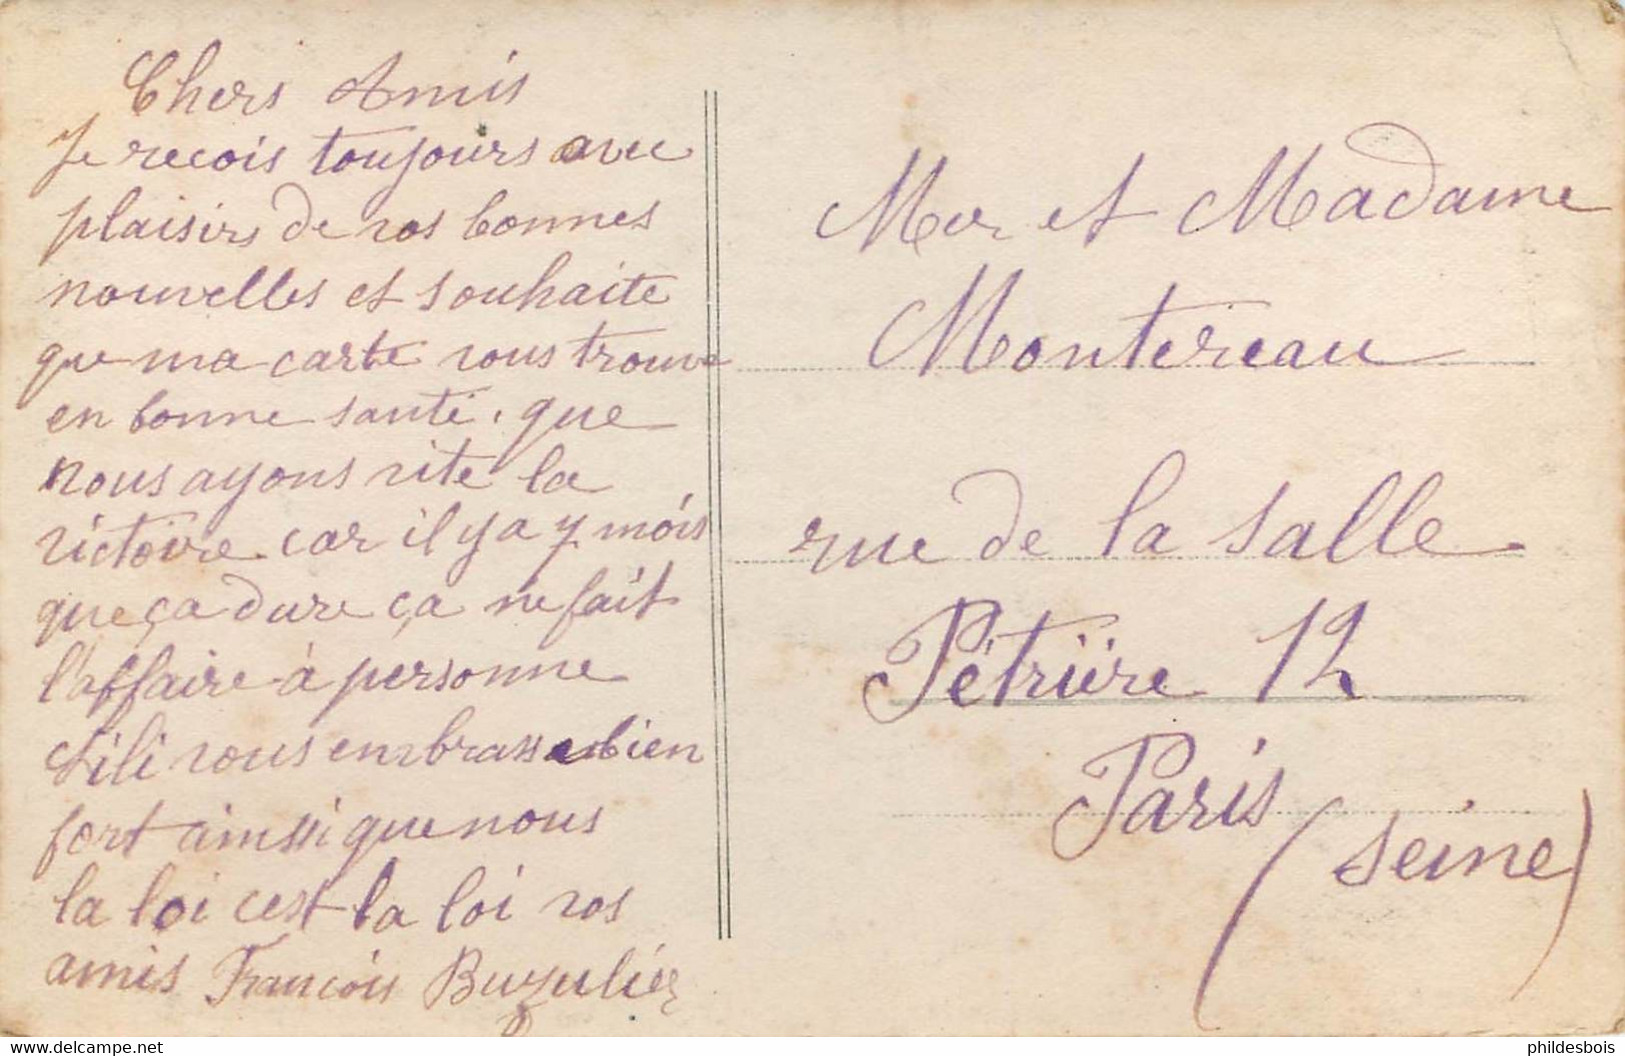 Chers Amis
Je recois toujours avec
plaisirs de vos bonnes
nouvelles et souhaite
que ma carte vous trouve
en bonne santé. que
nous ayons vite la
victoire car il y a 7 mois
que ça dure ça ne fait
l'affaire à personne
Lili vous embrasse bien
fort ainssi que nous
la loi cest la loi vos
amis François Buzulier
Mer et Madame
Montereau
rue de la Salle
Pétrière 12
Paris
(Seine)
www.delcampe.net
phildesbois